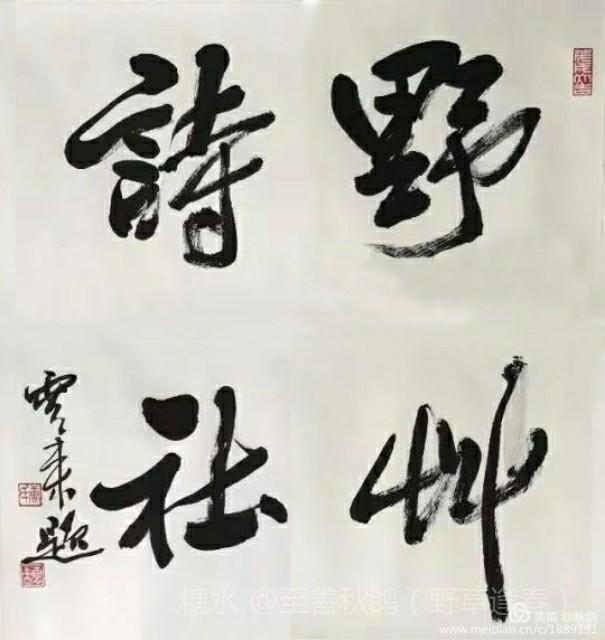 野艸
詩社
題
糖水 @至善秋鸽（野草逢春）
美篇 @秋鸽
www.meipian.cn/c/1889191